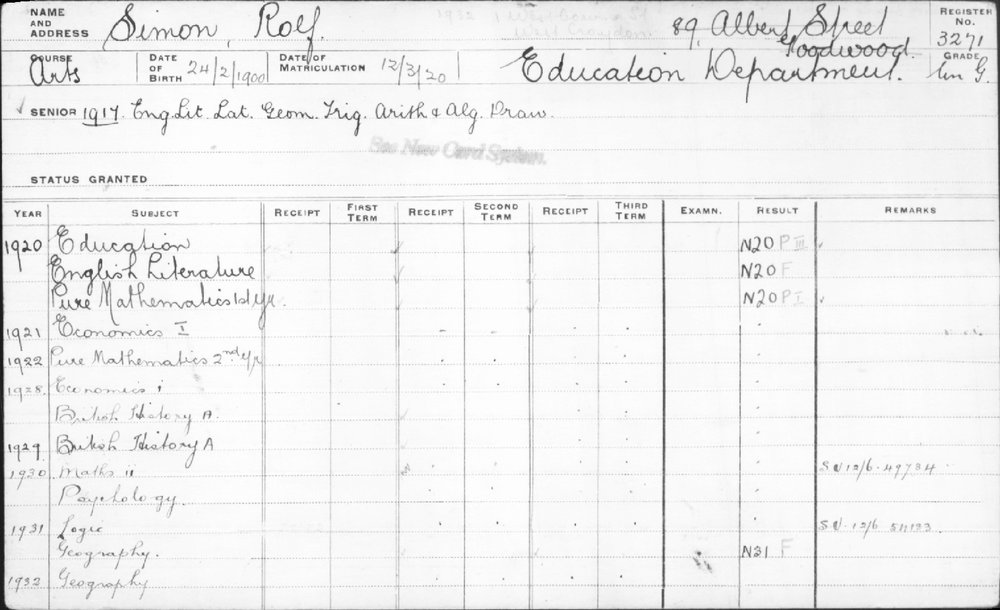 NAME AND ADDRESS Simon, Rolf. 89, Albert Street Goodwood. REGISTER No. 3271
COURSE Arts DATE OF BIRTH 24/2/1900 DATE OF MATRICULATION 12/3/20 Education Department. GRADE Un G.
SENIOR 1917. Eng. Lit. Lat. Geom. Trig. Arith & Alg. Draw.
See New Card System.
STATUS GRANTED
YEAR SUBJECT RECEIPT FIRST TERM RECEIPT SECOND TERM RECEIPT THIRD TERM EXAMN. RESULT REMARKS
1920 Education N20 P III
English Literature N20 F
Pure Mathematics 1st Yr. N20 P I
1921 Economics I
1922 Pure Mathematics 2nd Yr
1928 Economics i
British History A
1929 British History A
1930 Maths ii SV 12/6 49734
Psychology
1931 Logic SV 12/6
Geography. N31 F
1932 Geography